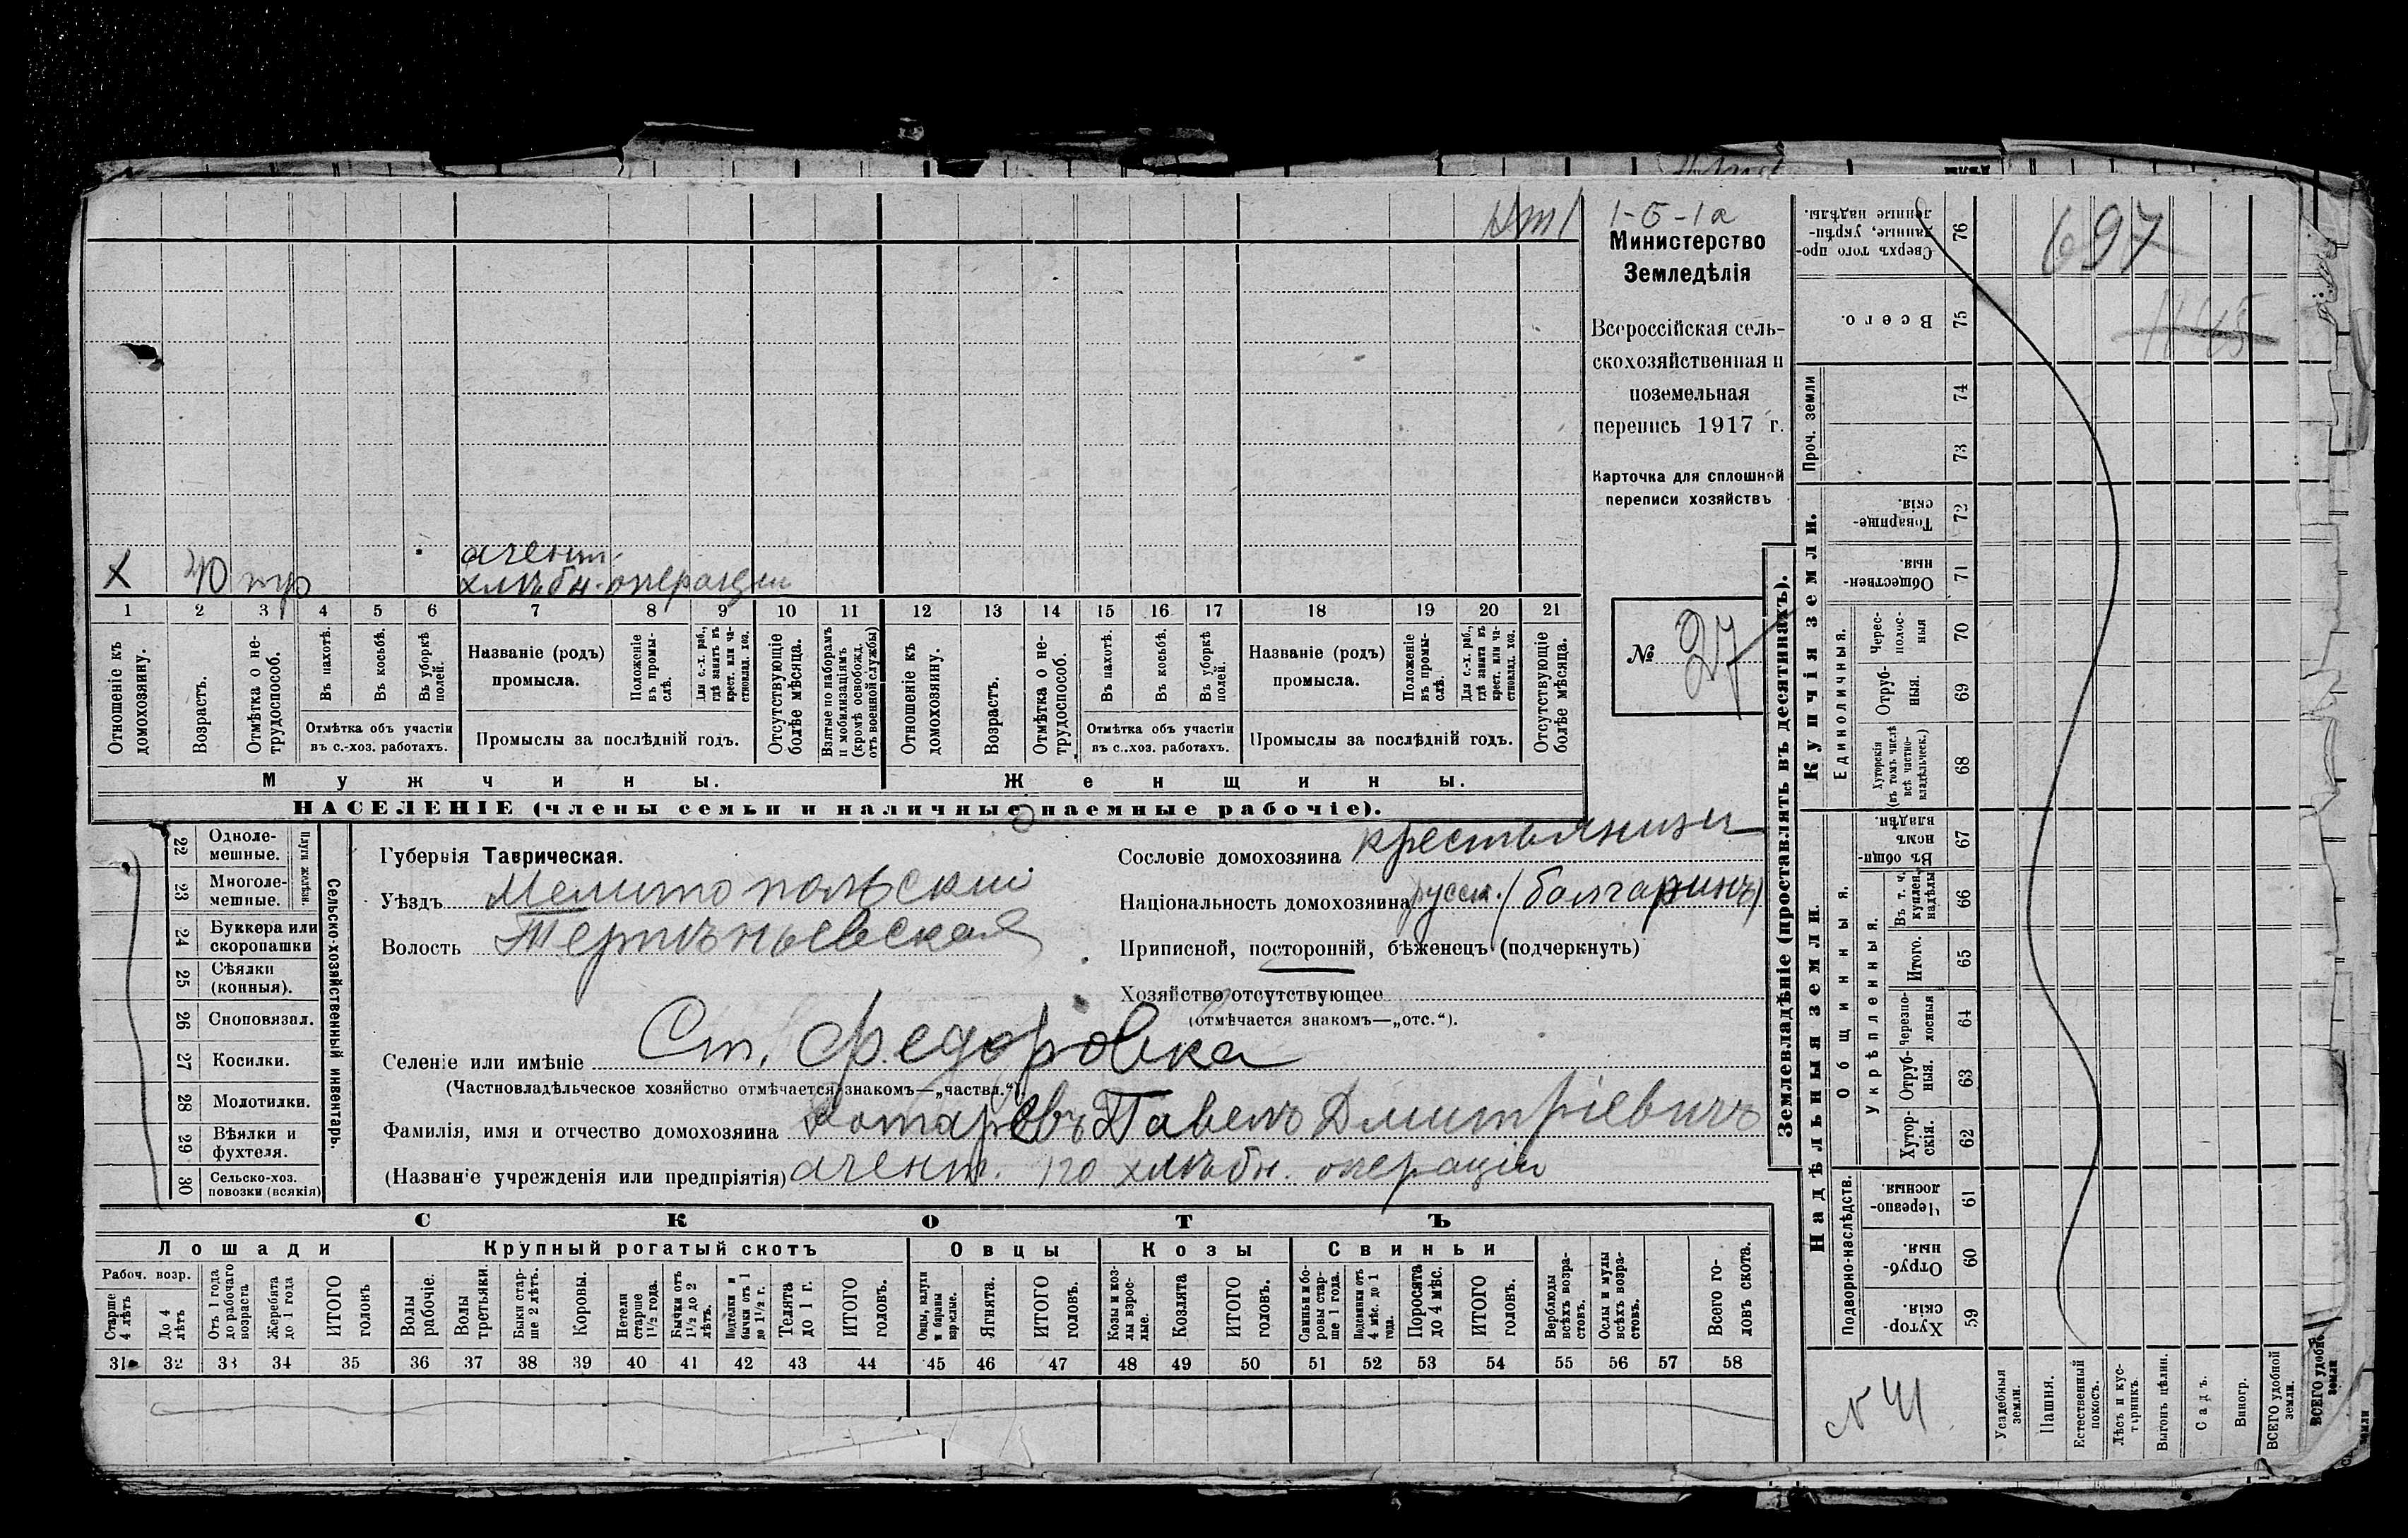 1-5-1а
Министерство
Земледѣлія
Всероссійская сель-
скохозяйственная и
поземельная
перепись 1917 г.
Карточка для сплошной
переписи хозяйствъ
№ 37
агент
Х 40 хлѣбн. операціи
1 2 3 4 5 6 7 8 9 10 11 12 13 14 15 16 17 18 19 20 21
Отношеніе къ домохозяину.
Возрастъ.
Отмѣтка о не-трудоспособ.
Въ пахотѣ.
Въ косьбѣ.
Въ уборкѣ полей.
Отмѣтка объ участіи въ с.-хоз. работахъ.
Названіе (родъ) промысла.
Положеніе въ промы-слѣ.
Для с.-х. раб., гдѣ занятъ въ крест. или ча-стновлад. хоз.
Промыслы за послѣдній годъ.
Отсутствующіе болѣе мѣсяца.
Взятые по наборамъ и мобилизаціямъ (кромѣ освобожд. отъ военной службы)
Отношеніе къ домохозяину.
Возрастъ.
Отмѣтка о не-трудоспособ.
Въ пахотѣ.
Въ косьбѣ.
Въ уборкѣ полей.
Отмѣтка объ участіи въ с.-хоз. работахъ.
Названіе (родъ) промысла.
Положеніе въ промы-слѣ.
Для с.-х. раб., гдѣ занята въ крест. или ча-стновлад. хоз.
Промыслы за послѣдній годъ.
Отсутствующіе болѣе мѣсяца.
Мужчины. Женщины.
НАСЕЛЕНІЕ (члены семьи и наличные наемные рабочіе).
22 Одноле-мешные.
23 Многоле-мешные.
Плуги желѣзн.
24 Буккера или скоропашки
25 Сѣялки (конныя).
26 Сноповязал.
27 Косилки.
28 Молотилки.
29 Вѣялки и фухтеля.
30 Сельско-хоз. повозки (всякія)
Сельско-хозяйственный инвентарь.
Губернія Таврическая.
Уѣздъ Мелитопольскій
Волость
Сословіе домохозяина крестьянинъ
Національность домохозяина русск. (болгаринъ)
Приписной, посторонній, бѣженецъ (подчеркнуть)
Хозяйство отсутствующее
(отмѣчается знакомъ—„отс.“).
Селеніе или имѣніе Ст. Федоровка
(Частновладѣльческое хозяйство отмѣчается знакомъ—„частвл.“)
Фамилія, имя и отчество домохозяина Павелъ Дмитріевичъ
(Названіе учрежденія или предпріятія) агент. по хлѣбн. операціи
СКОТЪ
Лошади Крупный рогатый скотъ Овцы Козы Свиньи
Рабоч. возр.
Старше 4 лѣтъ
До 4 лѣтъ
Отъ 1 года до рабочаго возраста
Жеребята до 1 года
ИТОГО головъ
Волы рабочіе.
Волы третьяки.
Быки стар-ше 2 лѣтъ.
Коровы.
Нетели старше 1½ года.
Бычки отъ 1½ до 2 лѣтъ.
Подтелки и бычки отъ 1 до 1½ г.
Телята до 1 г.
ИТОГО головъ.
Овцы, валухи и бараны взрослые.
Ягнята.
ИТОГО головъ.
Козы и коз-лы взрос-лые.
Козлята
ИТОГО головъ.
Свиньи и бо-ровы стар-ше 1 года.
Подсвинки отъ 4 мѣс. до 1 года.
Поросята до 4 мѣс.
ИТОГО головъ.
Верблюды всѣхъ возра-стовъ.
Ослы и мулы всѣхъ возра-стовъ.
Всего го-ловъ скота.
31 32 33 34 35 36 37 38 39 40 41 42 43 44 45 46 47 48 49 50 51 52 53 54 55 56 57 58
Землевладѣніе (проставлять въ десятинахъ).
Купчія земли.
Надѣльныя земли.
76 Сверхъ того про-данные, укрѣп-ленные надѣлы.
75 Всего.
Проч. земли
74
73
72 Товарище-скія
71 Обществен-ныя
Единоличныя.
70 Черес-полос-ныя
69 Отруб-ныя.
68 Хуторскія (въ томъ числѣ всѣ частно-владѣльческ.)
Общинныя.
67 Въ общи-номъ владѣн.
Укрѣпленныя.
66 Въ т. ч. куплен. надѣлы
65 Итого.
64 Черезпо-лосныя
63 Отруб-ныя.
62 Хутор-скія.
Подворно-наслѣдств.
61 Черезпо-лосныя.
60 Отруб-ныя
59 Хутор-скія
697
1165
№ 41
Усадебныя земли.
Пашня.
Естественный покосъ.
Лѣсъ и кус-тарникъ
Выгонъ цѣлин.
Садъ.
Виногр.
ВСЕГО удобной земли.
ВСЕГО удобн. земли